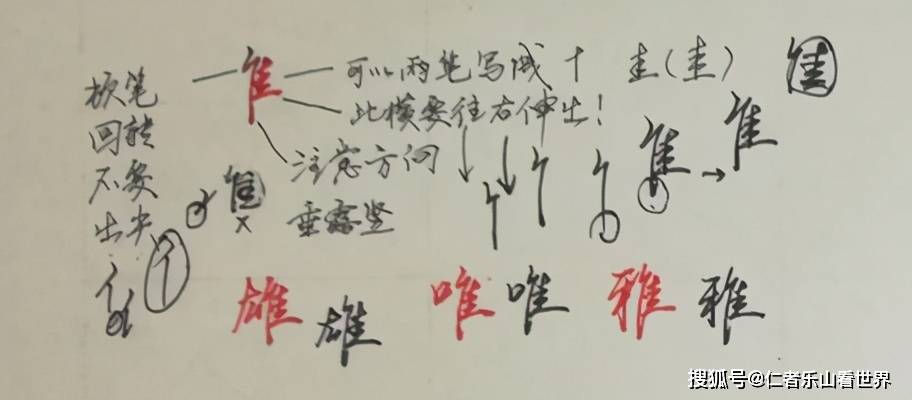 硬笔
回转
不要
出尖
隹
可以两笔写成 十 圭(圭) 隹
此横要往右伸出!
注意方向
垂露竖
隹
隹 → 隹
雄 雄 唯 唯 雅 雅
搜狐号@仁者乐山看世界